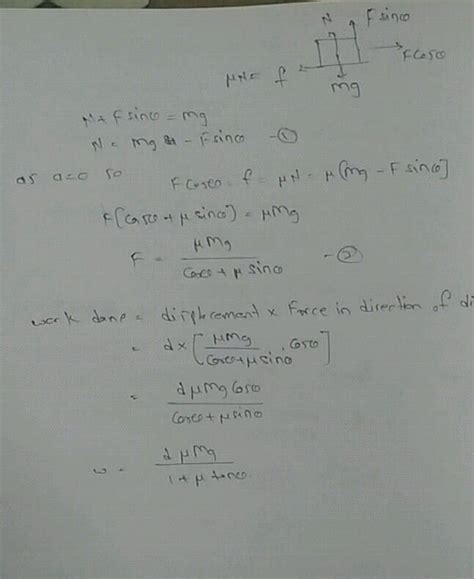 N F sinθ
F cosθ
μN = f
mg
N + F sinθ = mg
N = mg - F sinθ -①
as a=0 so F cosθ = f = μN = μ[mg - F sinθ]
F[cosθ + μ sinθ] = μmg
F = μMg / cosθ + μ sinθ -②
work done = displacement x Force in direction of di
= d x [μMg / cosθ + μ sinθ . cosθ]
= dμMg cosθ / cosθ + μ sinθ
w = dμMg / 1 + μ tanθ